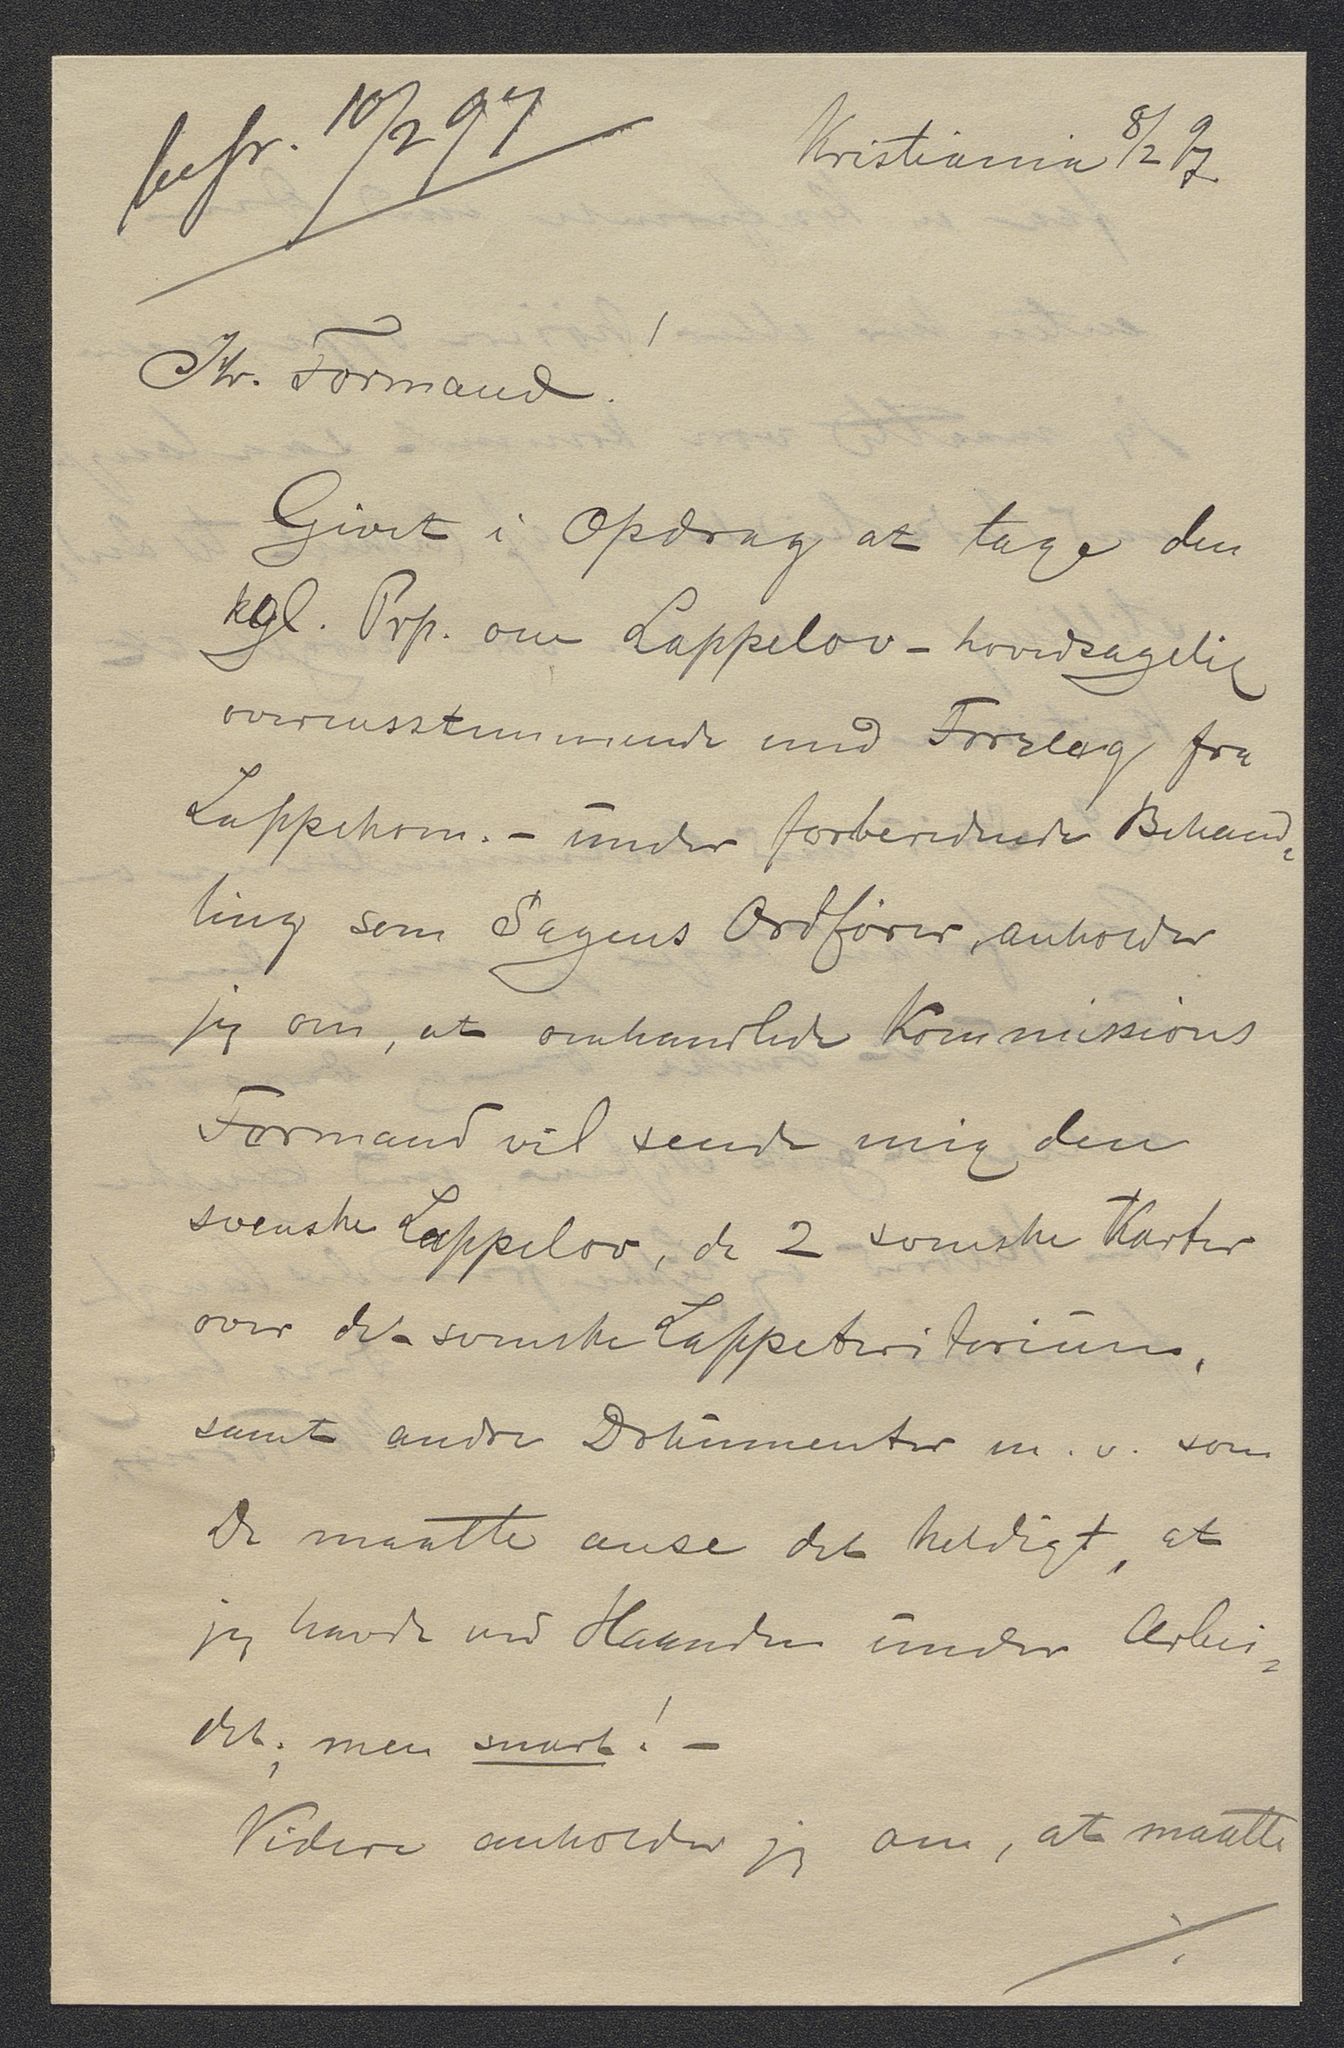 besv. 10/2 97
Kristiania 8/2 97
Hr. Formand!
Givet i Opdrag at tage den
kgl. Prp. om Lappelov - hovedsagelig
overensstemmende med Forslag fra
Lappekom. - under forberedende Behand-
ling som Sagens Ordfører, anholder
jeg om, at omhandlede Kommissions
Formand vil sende mig den
svenske Lappelov, de 2 svenske Karter
over det svenske Lappeteritorium,
samt andre Dokumenter m. v. som
De maatte anse det heldigt, at
jeg havde ved Haanden under Arbei-
det; men snart! -
Videre anholder jeg om, at maatte
./.